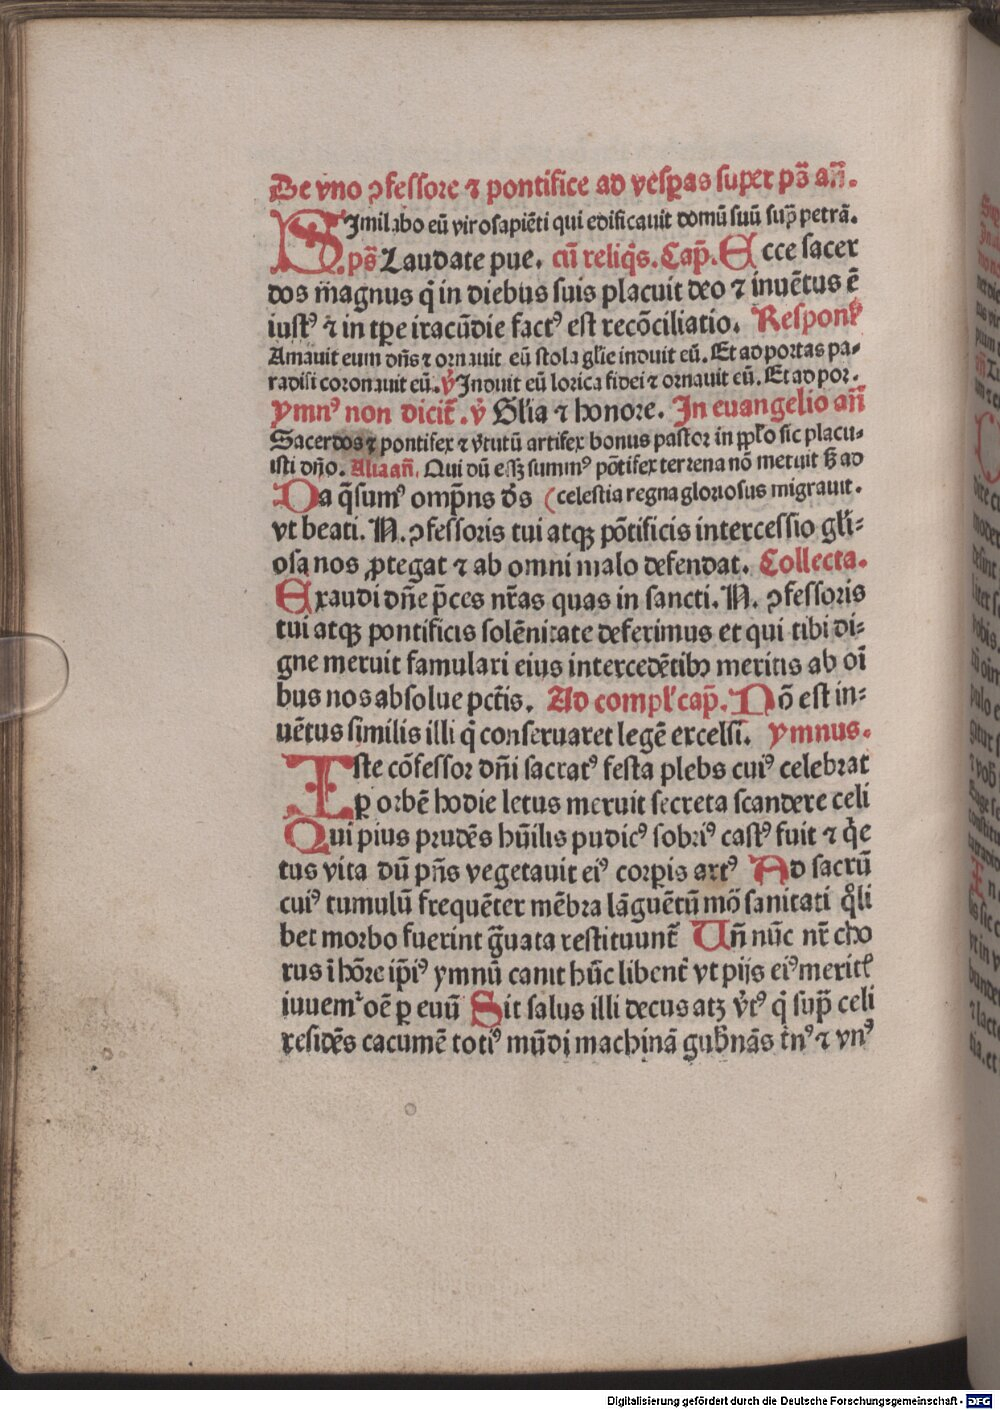 De vno ꝯfessore ⁊ pontifice ad vesꝑas super ps̄ an̄.
Similabo eū viro sapiēti qui edificauit domū suū suꝑ petrā.
ps̄ Laudate pue. cū reliq̄s. Cap̄. Ecce sacer
dos magnus q̄ in diebus suis placuit deo ⁊ inuētus ē
iustꝰ ⁊ in tꝑe iracūdie factꝰ est recōciliatio. Respons̄
Amauit eum dn̄s ⁊ ornauit eū stola gl̄ie induit eū. Et ad portas pa-
radisi coronauit eū. v̄ Induit eū lorica fidei ⁊ ornauit eū. Et ad por.
ymnꝰ non dicit̄. v̄ Gl̄ia ⁊ honore. In euangelio an̄
Sacerdos ⁊ pontifex ⁊ v̄tutū artifex bonus pastor in pp̄lo sic placu-
isti dn̄o. Alia an̄. Qui dū eēt summꝰ pōtifex terrena nō metuit sꝫ ad
Da q̄sumꝰ omp̄ns dꝰs (celestia regna gloriosus migrauit.
vt beati. N. ꝯfessoris tui atqꝫ pōtificis intercessio gl̄i-
osa nos ꝓtegat ⁊ ab omni malo defendat. Collecta.
Exaudi dn̄e p̄ces nr̄as quas in sancti. N. ꝯfessoris
tui atqꝫ pontificis solēnitate deferimus et qui tibi di-
gne meruit famulari eius intercedētibꝫ meritis ab oī
bus nos absolue pctīs. Ad compl̄ cap̄. Nō est in-
uētus similis illi q̄ conseruaret legē excelsi. ymnus.
Iste cōfessor dn̄i sacratꝰ festa plebs cuiꝰ celebrat
ꝑ orbē hodie letus meruit secreta scandere celi
Qui pius prudēs hūilis pudicꝰ sobriꝰ castꝰ fuit ⁊ q̄e
tus vita dū pn̄s vegetauit eiꝰ corꝑis artꝰ Ad sacrū
cuiꝰ tumulū frequēter mēbra lāguētū mō sanitati q̄li
bet morbo fuerint ḡuata restituunt̄ Un̄ nūc nr̄ cho
rus ī hōre ip̄iꝰ ymnū canit hūc libent̄ vt pijs eiꝰ merit̄
iuuemᷣ oē ꝑ euū Sit salus illi decus atꝫ v̄tꝰ q̄ sup̄ celi
residēs cacumē totiꝰ mūdi machinā gub̄nās t̄nꝰ ⁊ vnꝰ
Digitalisierung gefördert durch die Deutsche Forschungsgemeinschaft - DFG